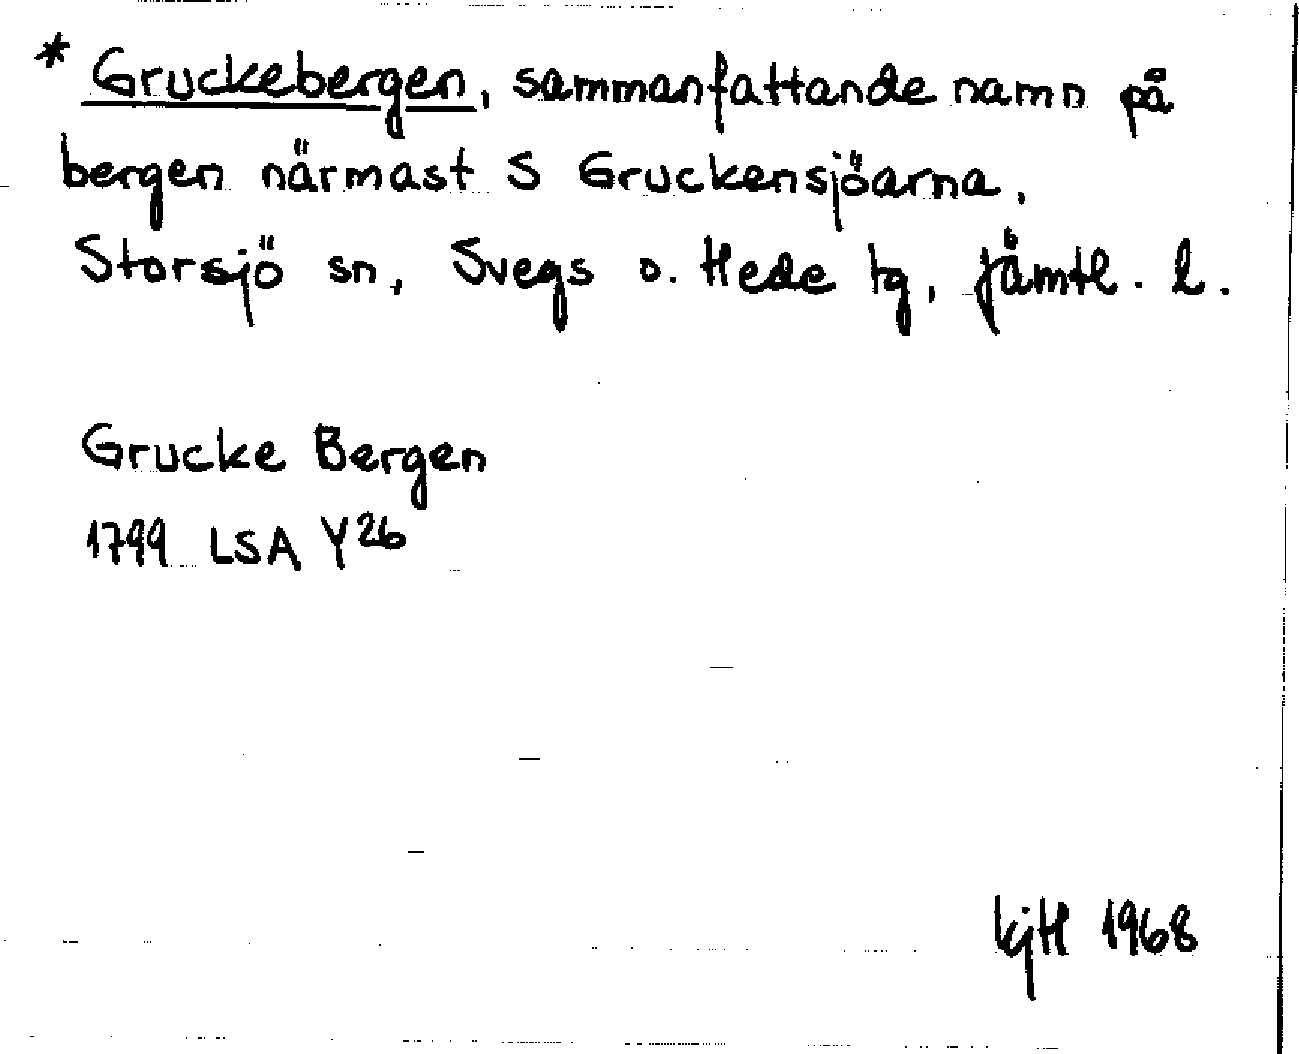 * Gruckebergen, sammanfattande namn på
bergen närmast S Gruckensjöarna,
Storsjö sn, Svegs o. Hede tg, Jämtl. l.
Grucke Bergen
1799 LSA Y26
KjH 1968